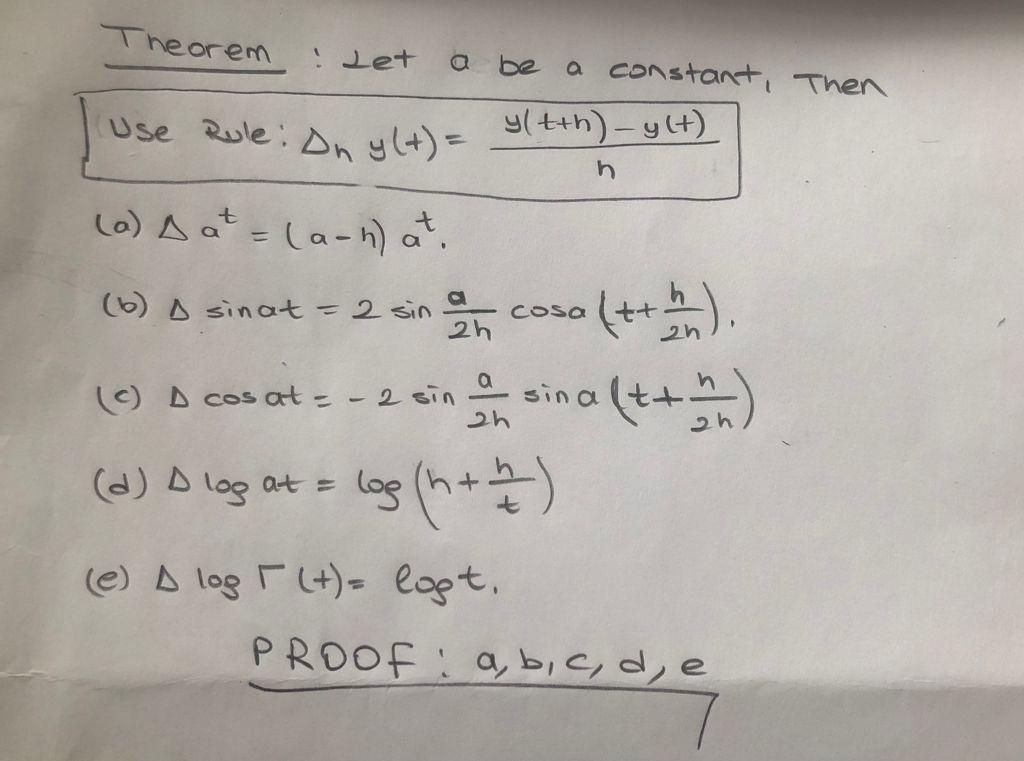 Theorem : Let a be a constant, Then
Use Rule: Δh y(t) = y(t+h) - y(t) / h
(a) Δ a^t = (a-h) a^t.
(b) Δ sin at = 2 sin a/2h cos a (t + h/2h).
(c) Δ cos at = - 2 sin a/2h sin a (t + h/2h)
(d) Δ log at = log (h + h/t)
(e) Δ log Γ (t) = log t.
PROOF : a, b, c, d, e